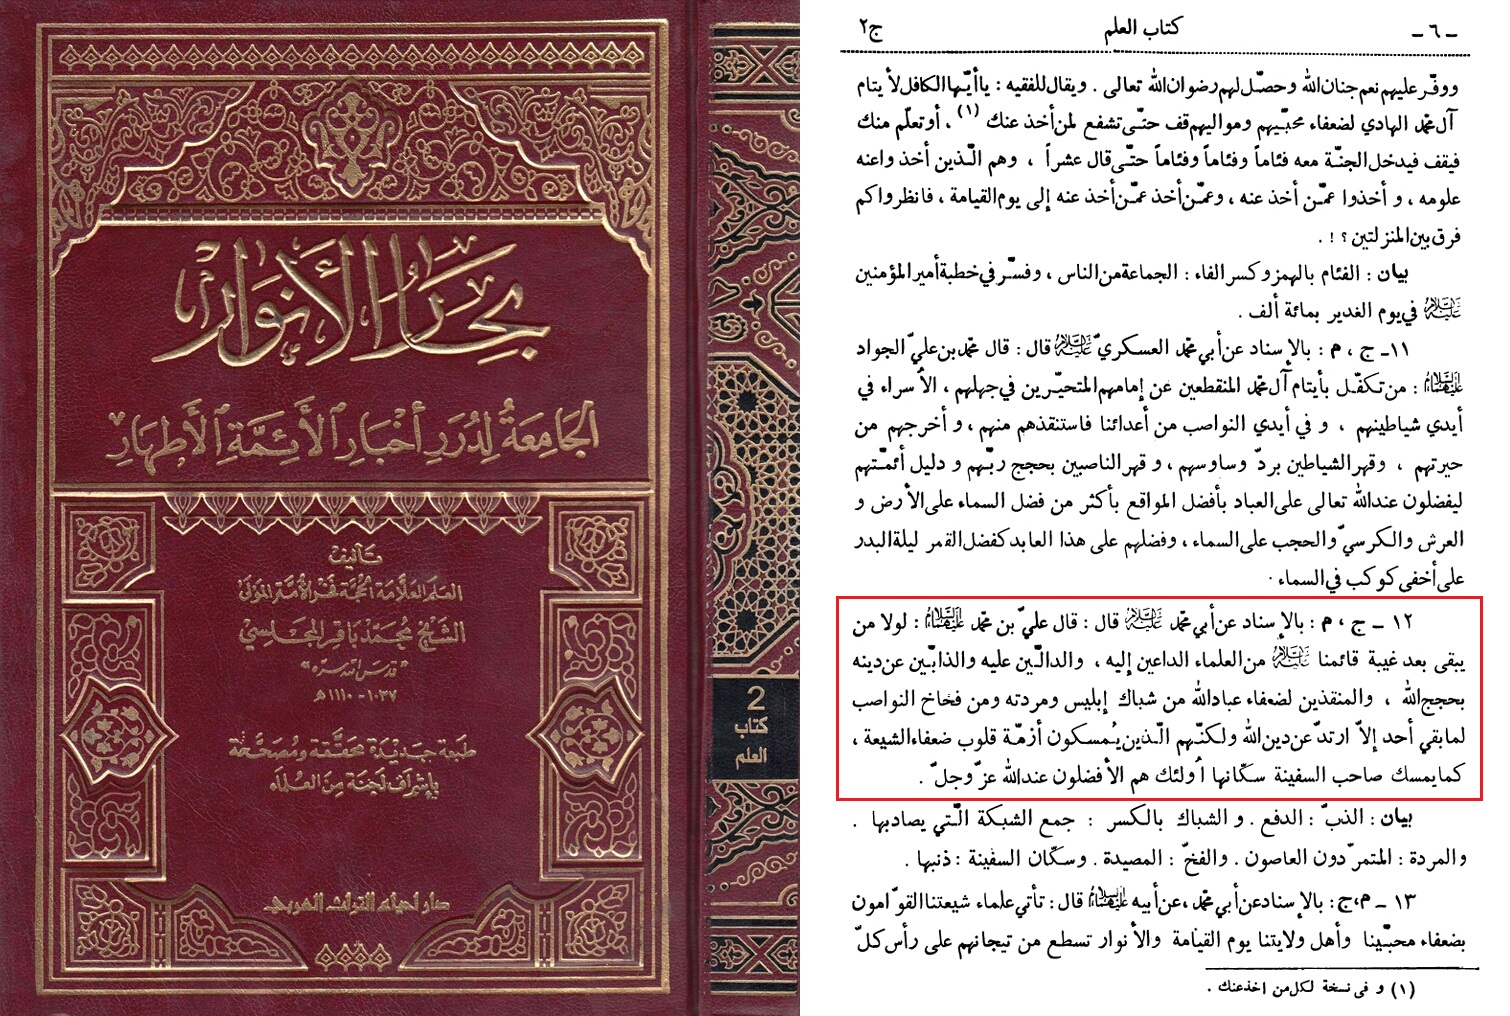 بحار الأنوار
الجَامِعَةُ لِدُرَرِ أَخْبَارِ الأَئِمَّةِ الأَطْهَارِ
تأليف
العلم العلامة الحجة فخر الأمة المولى
الشيخ محمد باقر المجلسي
"قدس الله سره"
١٠٣٧ - ١١١٠ هـ
طبعة جديدة محققة ومصححة
بإشراف لجنة من العلماء
دار احياء التراث العربي
2
كتاب
العلم
ـ ٦ ـ كتاب العلم ج٢
ووفّر عليهم نعم جنان الله وحصّل لهم رضوان الله تعالى . ويقال للفقيه : يا أيّها الكافل لأ يتام
آل محمّد الهادي لضعفاء محبّيهم ومواليهم قف حتّى تشفع لمن أخذ عنك (١) ، أو تعلّم منك
فيقف فيدخل الجنّة معه فئاماً وفئاماً وفئاماً حتّى قال عشراً ، وهم الّذين أخذ واعنه
علومه ، و أخذوا عمّن أخذ عنه ، وعمّن أخذ عمّن أخذ عنه إلى يوم القيامة ، فانظروا كم
فرق بين المنزلتين ؟ ! .
بيان : الفئام بالهمز وكسر الفاء : الجماعة من الناس ، وفسّر في خطبة أمير المؤمنين
عليه السلام في يوم الغدير بمائة ألف .
١١ـ ج ، م : بالإسناد عن أبي محمّد العسكريّ عليه السلام قال : قال محمّد بن عليّ الجواد
عليهما السلام : من تكفّل بأيتام آل محمّد المنقطعين عن إمامهم المتحيّرين في جهلهم ، الأسراء في
أيدي شياطينهم ، و في أيدي النواصب من أعدائنا فاستنقذهم منهم ، و أخرجهم من
حيرتهم ، وقهر الشياطين بردّ وساوسهم ، و قهر الناصبين بحجج ربّهم و دليل أئمّتهم
ليفضلون عند الله تعالى على العباد بأفضل المواقع بأكثر من فضل السماء على الأرض و
العرش والكرسيّ والحجب على السماء ، وفضلهم على هذا العابد كفضل القمر ليلة البدر
على أخفى كوكب في السماء .
١٢ ـ ج ، م : بالإسناد عن أبي محمّد عليه السلام قال : قال عليّ بن محمّد عليهما السلام : لولا من
يبقى بعد غيبة قائمنا عليه السلام من العلماء الداعين إليه ، والدالّين عليه والذابّين عن دينه
بحجج الله ، والمنقذين لضعفاء عباد الله من شباك إبليس ومردته ومن فخاخ النواصب
لما بقي أحد إلاّ ارتدّ عن دين الله ولكنّهم الّذين يُمسكون أزمّة قلوب ضعفاء الشيعة ،
كما يمسك صاحب السفينة سكّانها أولئك هم الأفضلون عند الله عزّ وجلّ .
بيان : الذبّ : الدفع . و الشباك بالكسر : جمع الشبكة الّتي يصاد بها .
والمردة : المتمرّدون العاصون . والفخّ : المصيدة . وسكّان السفينة : ذنبها .
١٣ ـ م،ج : بالإسناد عن أبي محمّد ، عن أبيه عليهما السلام قال : تأتي علماء شيعتنا القوّامون
بضعفاء محبّينا وأهل ولايتنا يوم القيامة والأنوار تسطع من تيجانهم على رأس كلّ
(١) و فى نسخة لكل من اخذ عنك .